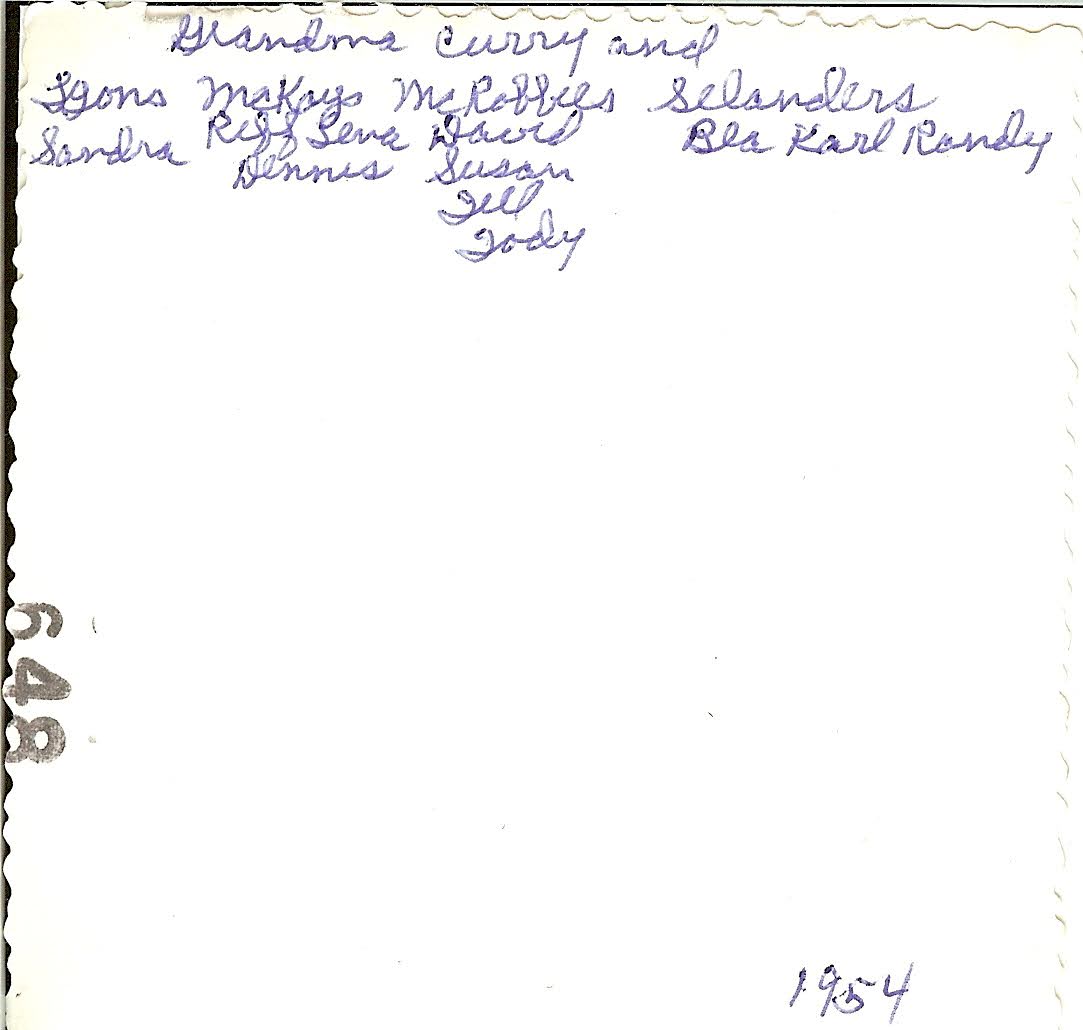 Grandma Curry and
Lyons McKays McRobbies Selanders
Sandra Reff Lena David Bea Karl Randy
Dennis Susan
Jody
648
1954